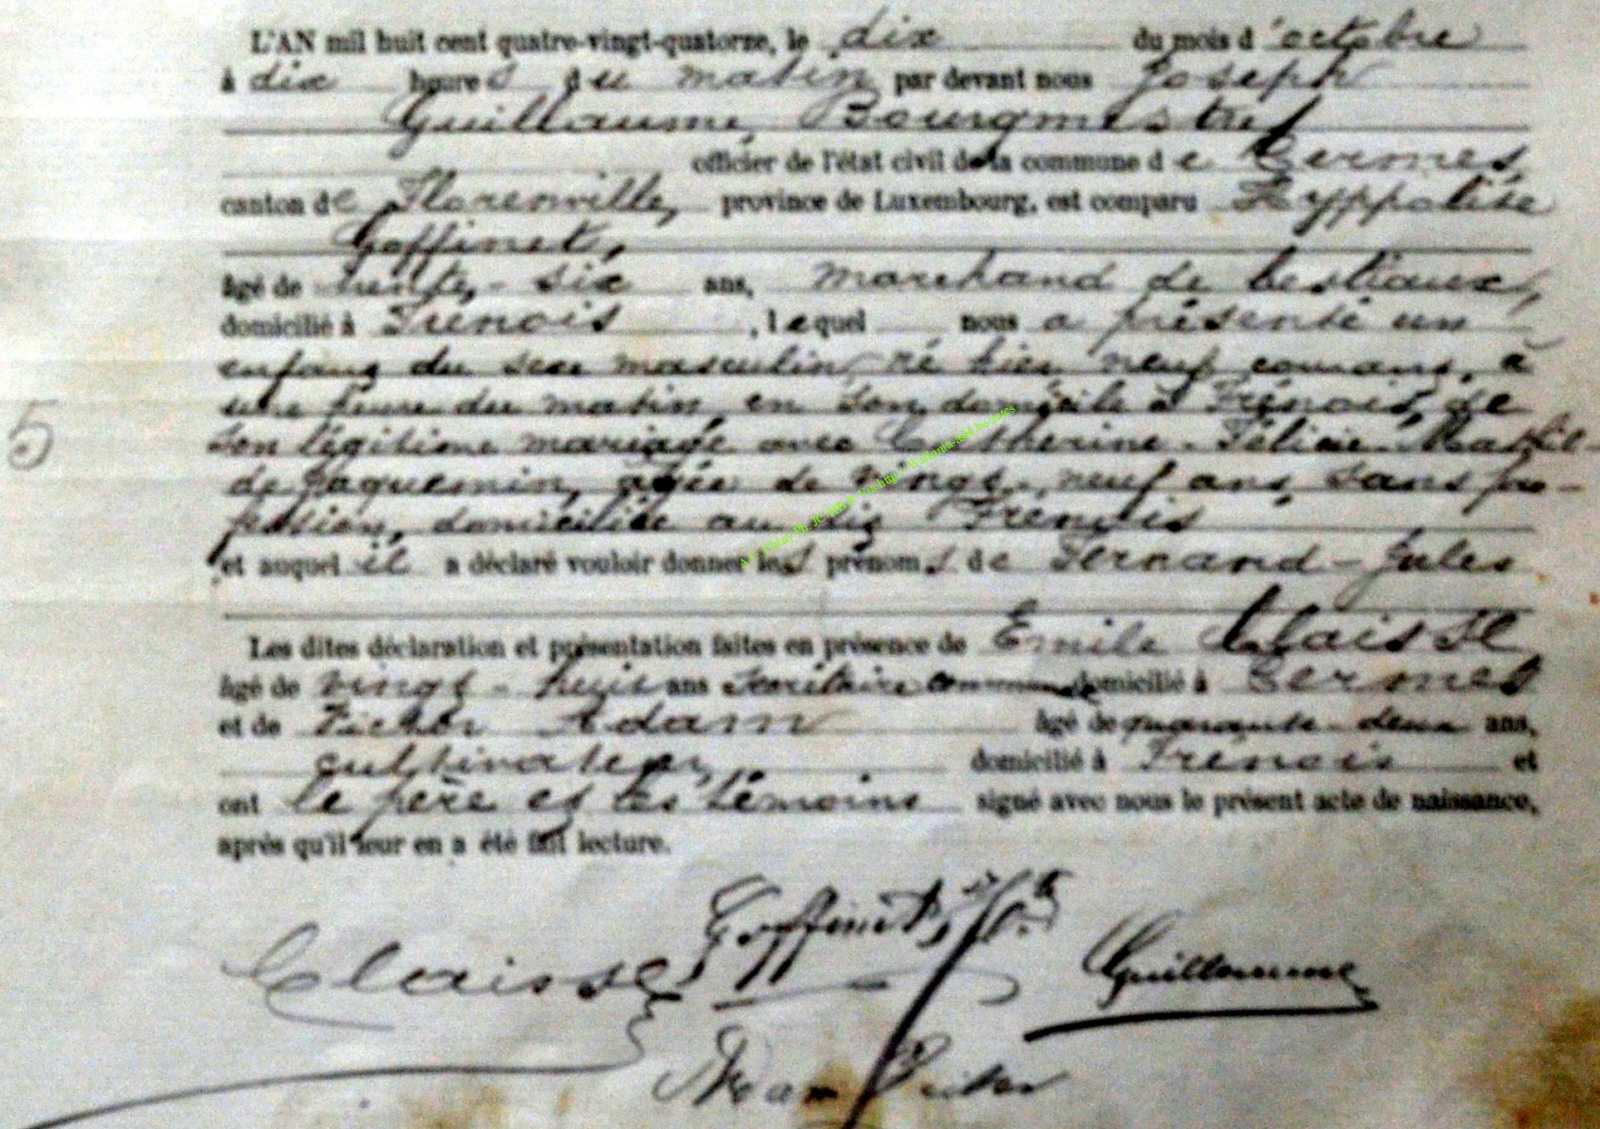 L'AN mil huit cent quatre-vingt-quatorze, le dix du mois d'octobre
à dix heures du matin par devant nous Joseph
Guillaume, Bourgmestre
officier de l'état civil de la commune de Termes,
canton de Florenville, province de Luxembourg, est comparu Hyppolite
Goffinet,
âgé de trente-six ans, marchand de bestiaux,
domicilié à Frenois, lequel nous a présenté un
enfant du sexe masculin, né hier neuf courant, à
une heure du matin, en son domicile à Frénois, de
son légitime mariage avec Catherine-Félicie Mathil-
de Jaquemin, âgée de vingt-neuf ans, sans pro-
fession, domiciliée au dit Frénois
et auquel il a déclaré vouloir donner les prénoms de Fernand-Jules
5
Les dites déclaration et présentation faites en présence de Emile Claisse
âgé de vingt-huit ans secrétaire communal domicilié à Termes
et de Victor Adam âgé de quarante deux ans,
cultivateur domicilié à Frénois et
ont le père et les témoins signé avec nous le présent acte de naissance,
après qu'il leur en a été fait lecture.
Goffinet
Claisse
Guillaume
Adam Victor